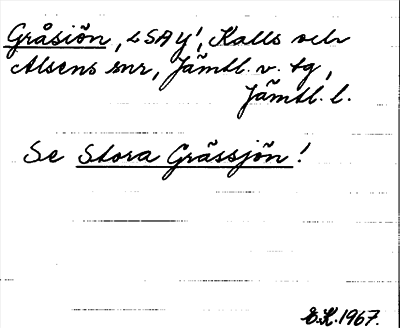 Gråsiön, "SAY", Kalls och
Alsens snr, Jämtl. v. tg,
Jämtl. l.
Se Stora Gråssjön!
E.K. 1967.